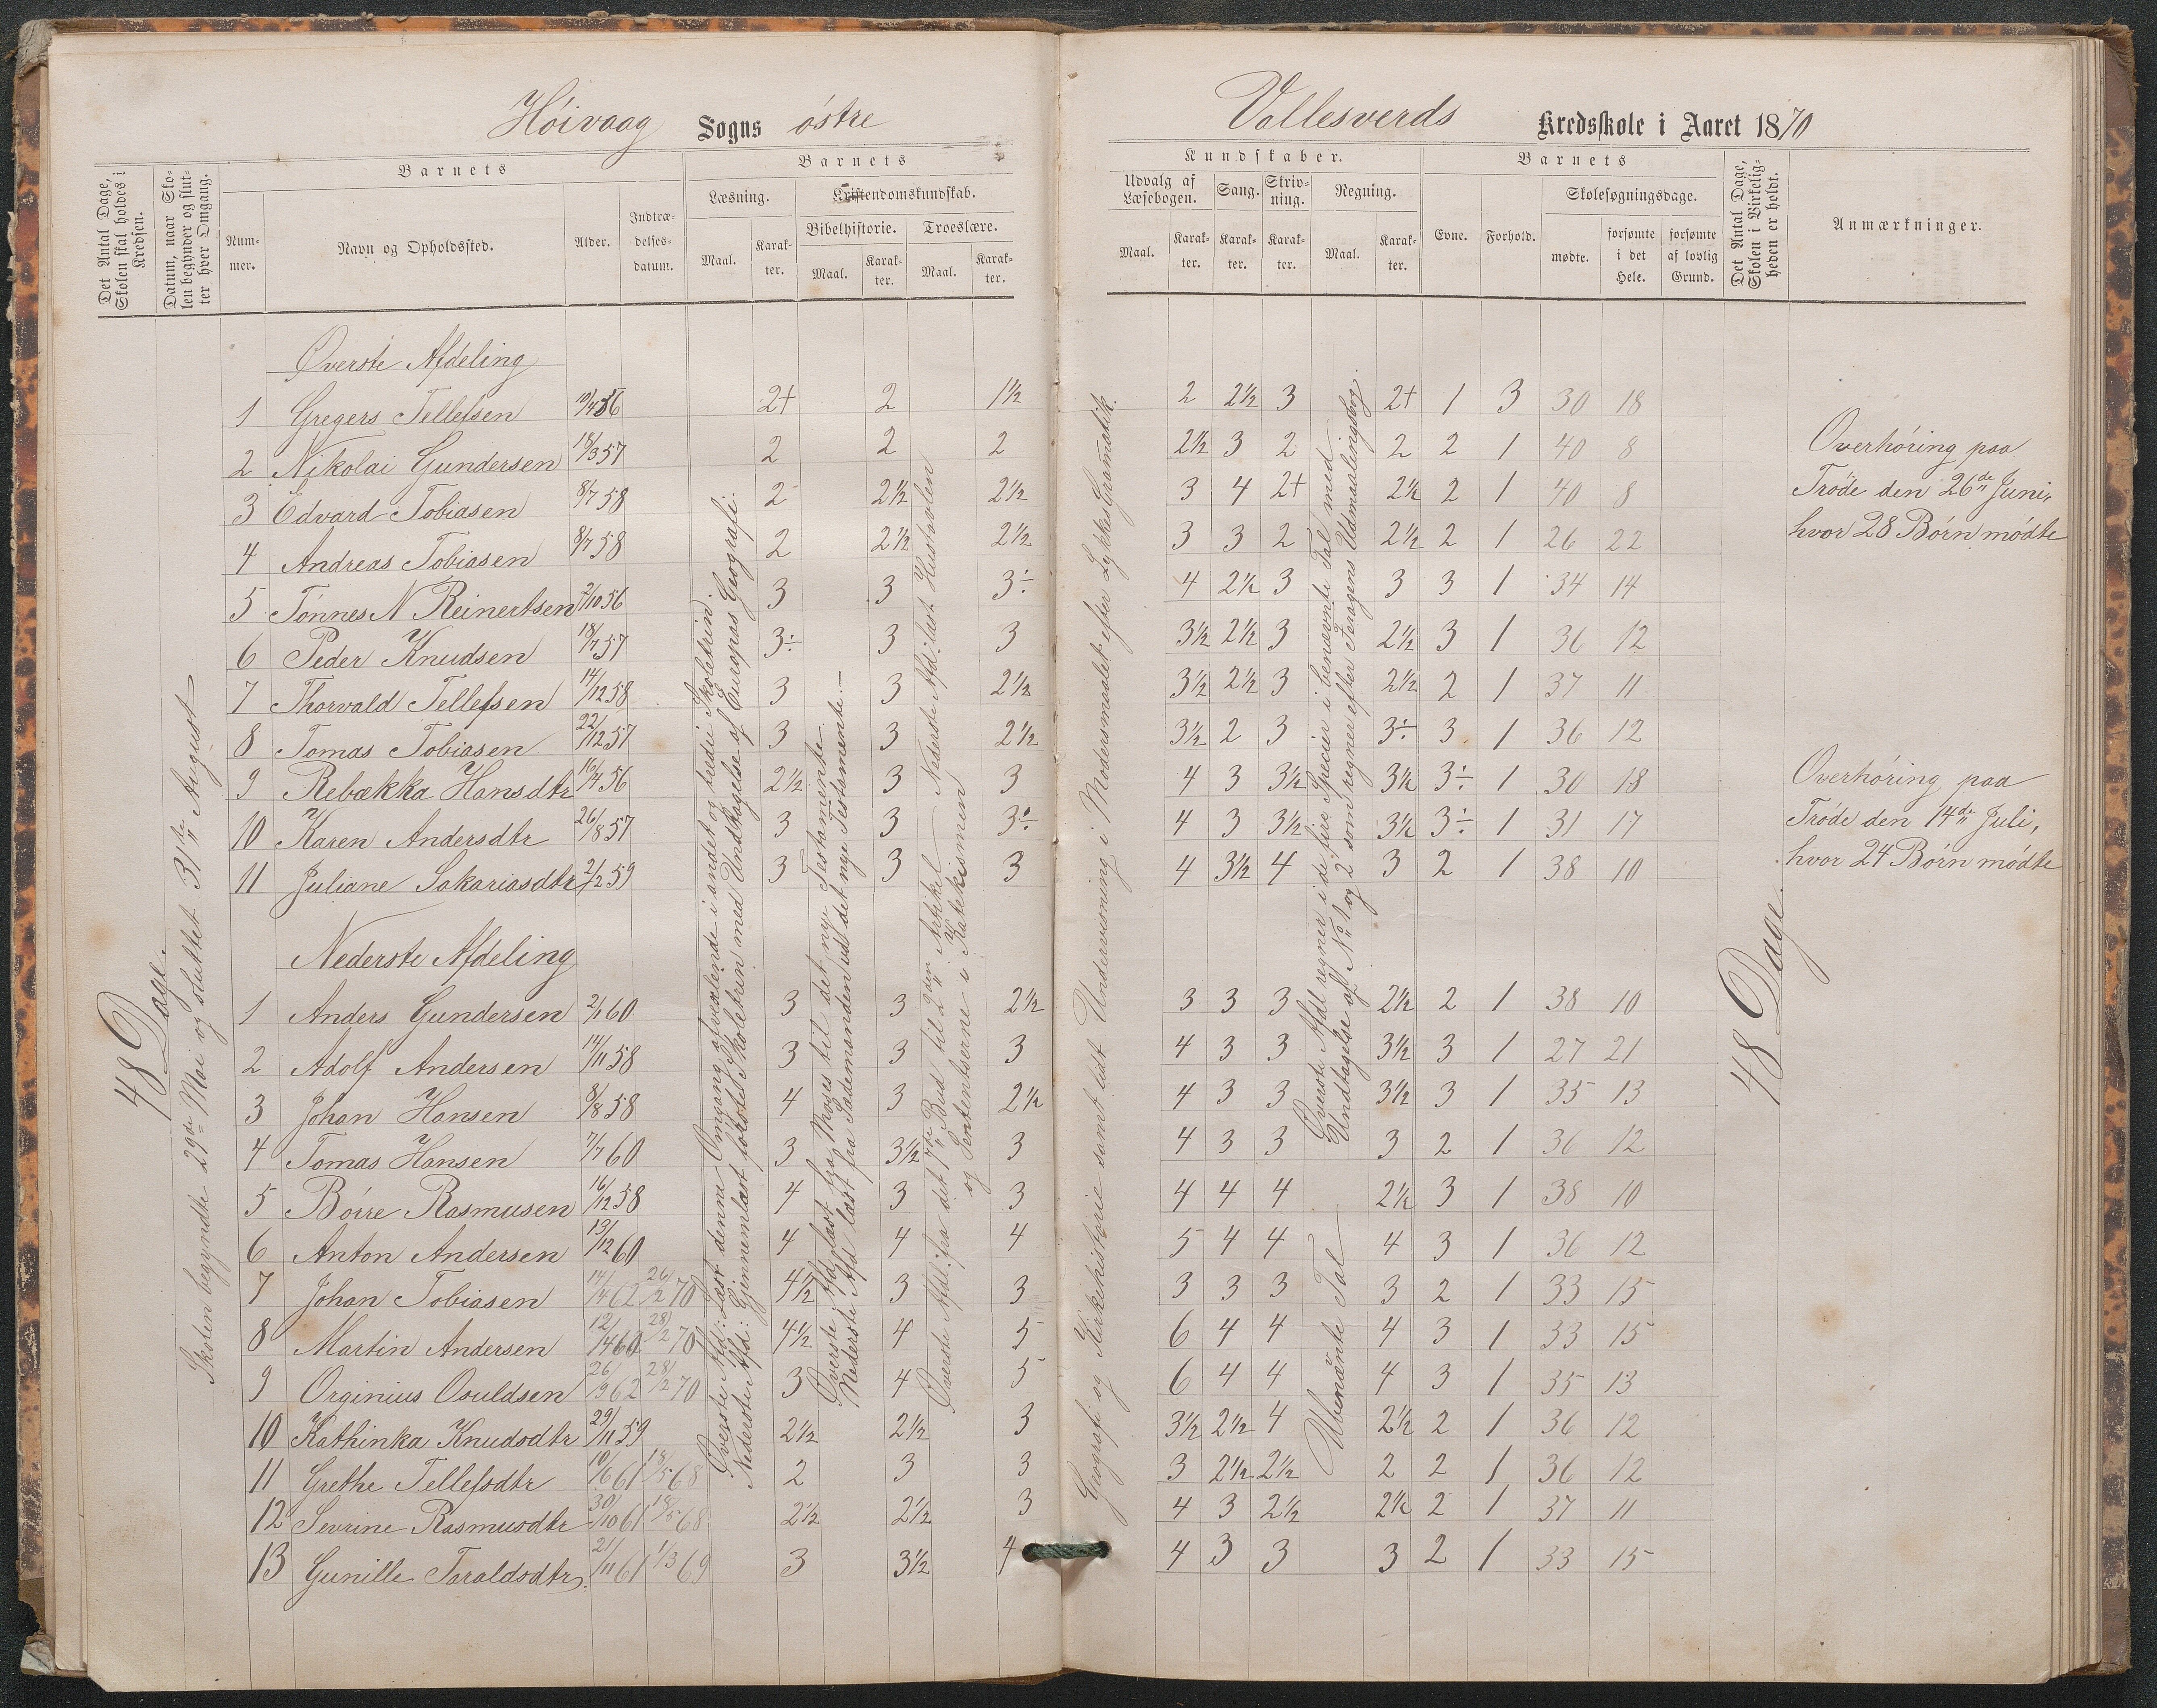 Höivaag Sogns östre
Vallesverds Kredsskole i Aaret 1870
Det Antal Dage, Skolen skal holdes i Kredsen.
Datum, naar Skolen begynder og slutter hver Omgang.
Barnets
Nummer.
Navn og Opholdssted.
Alder.
Indtrædelsesdatum.
Barnets
Læsning.
Kristendomskundskab.
Bibelhistorie.
Troeslære.
Maal.
Karakter.
Maal.
Karakter.
Maal.
Karakter.
Kundskaber.
Udvalg af Læsebogen.
Sang.
Skrivning.
Regning.
Maal.
Karakter.
Karakter.
Karakter.
Maal.
Karakter.
Barnets
Evne.
Forhold.
Skolesøgningsdage.
mødte.
forsømte i det Hele.
forsømte af lovlig Grund.
Det Antal Dage, Skolen i Virkeligheden er holdt.
Anmærkninger.
48 Dage.
Skolen begyndte 29de Mai og sluttet 31te August
Øverste Afdeling
1 Gregers Tellefsen 2+ 2 1½ 2 2½ 3 2+ 1 3 30 18
2 Nikolai Gundersen 18/3 57 2 2 2 2½ 3 2 2 2 1 40 8
3 Edvard Tobiasen 8/7 58 2 2½ 2½ 3 4 2+ 2½ 2 1 40 8
4 Andreas Tobiasen 8/7 58 2 2½ 2½ 3 3 2 2½ 2 1 26 22
5 Tönnes N Reinertsen 2/10 56 3 3 3÷ 4 2½ 3 3 3 1 34 14
6 Peder Knudsen 18/7 57 3÷ 3 3 3½ 2½ 3 2½ 3 1 36 12
7 Thorvald Tellefsen 14/12 58 3 3 2½ 3½ 2½ 3 2½ 2 1 37 11
8 Tomas Tobiasen 22/12 57 3 3 2½ 3½ 2 3 3÷ 3 1 36 12
9 Rebækka Hansdtr 16/4 56 2½ 3 3 4 3 3½ 3½ 3÷ 1 30 18
10 Karen Andersdtr 26/8 57 3 3 3÷ 4 3 3½ 3½ 3÷ 1 31 17
11 Juliane Sakariasdtr 2/2 59 3 3 3 4 3½ 4 3 2 1 38 10
Nederste Afdeling
1 Anders Gundersen 2/1 60 3 3 2½ 3 3 3 2½ 2 1 38 10
2 Adolf Andersen 14/11 58 3 3 3 4 3 3 3½ 3 1 27 21
3 Johan Hansen 8/8 58 4 3 2½ 4 3 3 3½ 3 1 35 13
4 Tomas Hansen 7/7 60 3 3½ 3 4 3 3 3 2 1 36 12
5 Börre Rasmusen 16/12 58 4 3 3 4 4 4 2½ 3 1 38 10
6 Anton Andersen 13/12 60 4 4 4 5 4 4 4 3 1 36 12
7 Johan Tobiasen 14/4 62 26/2 70 4½ 3 3 3 3 3 3 2 1 33 15
8 Martin Andersen 28/2 70 4½ 4 5 6 4 4 4 3 1 33 15
9 Orginius Osuldsen 26/9 62 28/2 70 3 4 5 6 4 4 4 3 1 35 13
10 Kathinka Knudsdtr 29/11 59 2½ 2½ 3 3½ 2½ 4 2½ 2 1 36 12
11 Grethe Tellefsdtr 10/6 61 18/5 68 2 3 3 3 2½ 2½ 2 2 1 36 12
12 Sevrine Rasmusdtr 30/10 61 18/5 68 2½ 2½ 3 4 3 2½ 2½ 2 1 37 11
13 Gunille Taraldsdtr. 21/11 61 1/3 69 3 3½ 4 4 3 3 3 2 1 33 15
Øverste Afd: Læst denne Omgang afvexlende i andet og tredie Skoletrin.
Nederste Afd: Gjennemlæst første Skoletrin med Undtagelse af Europas Geografi.
Øverste Afd læst fra Moses til det nye Testamente
Nederste Afd læst fra Sædemanden ud det nye Testamente.
Øverste Afdl: fra det 7de Bud til 2den Artikkel
Nederste Afd: læst Hustavlen
og Sententserne i Katekismen
Geografi og Kirkehistorie samt lidt Undervisning i Modersmaalet efter Lykkes Gramatik.
Øverste Afdl regner i de fire Specier i benævnte Tal med
Undtagelse af No 1 og 2 som regner efter Udmaalingsbog.
Ubenänte Tal
48 Dage.
Overhöring paa
Tröde den 26de Juni,
hvor 28 Börn mödte
Overhöring paa
Tröde den 14de Juli,
hvor 24 Börn mödte